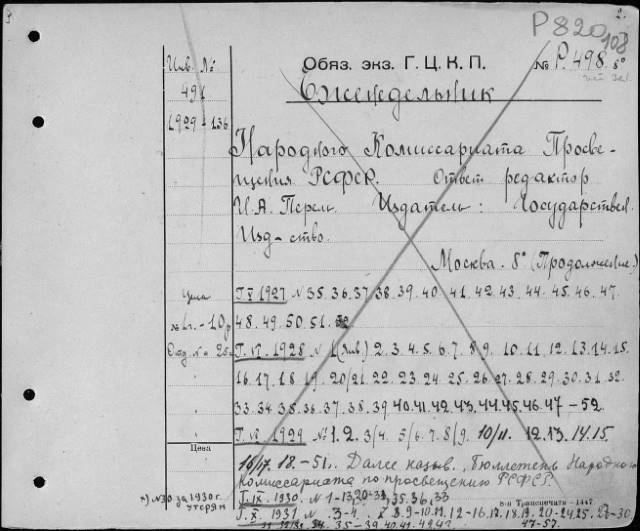 Р820
108
Обяз. экз. Г. Ц. К. П. № Р.498 8°
Инв. №
491
1929-136
Еженедельник
Народного Комиссариата Просве-
щения РСФСР. Ответ. редактор
И. А. Перел. Издатель: Государствен.
Изд-ство.
Москва. 8° (Продолжение.)
Цена
Г. V 1927. N 35. 36. 37. 38. 39. 40. 41. 42. 43. 44. 45. 46. 47.
48. 49. 50. 51. 52
Г. VI. 1928 N 1 (Янв.) 2. 3. 4. 5. 6. 7. 8. 9. 10. 11. 12. 13. 14. 15.
16. 17. 18. 19. 20/21. 22. 23. 24. 25. 26. 27. 28. 29. 30. 31. 32.
33. 34. 35. 36. 37. 38. 39. 40. 41. 42. 43. 44. 45. 46. 47 – 52.
Г. VII 1929 № 1. 2. 3/4. 5/6. 7. 8/9. 10/11. 12. 13. 14. 15.
Цена
16/17. 18. – 51. Далее назыв. Бюллетень Народного
Комиссариата по просвещению РСФСР.
*) N 30 за 1930 г. утерян
Г. IX. 1930. N 1-13, 20-33, 35. 36. 33
8-я Транспечати —1447
Г. X. 1931 N 3-4.
35-39. 40. 41.
47-57.